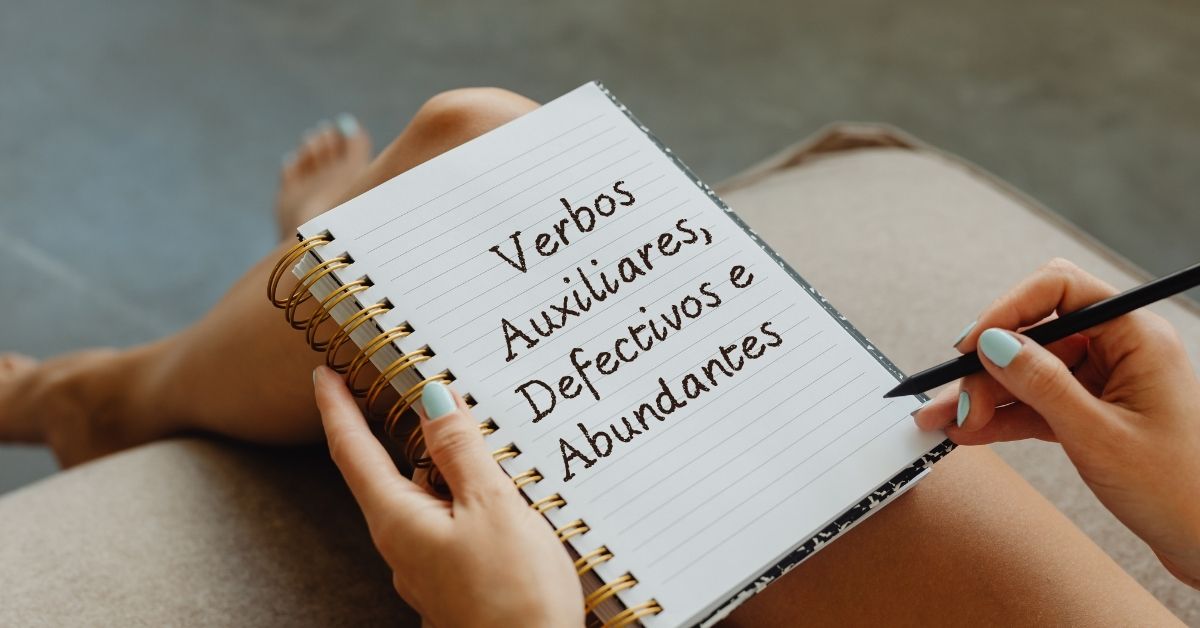 Verbos
Auxiliares,
Defectivos e
Abundantes